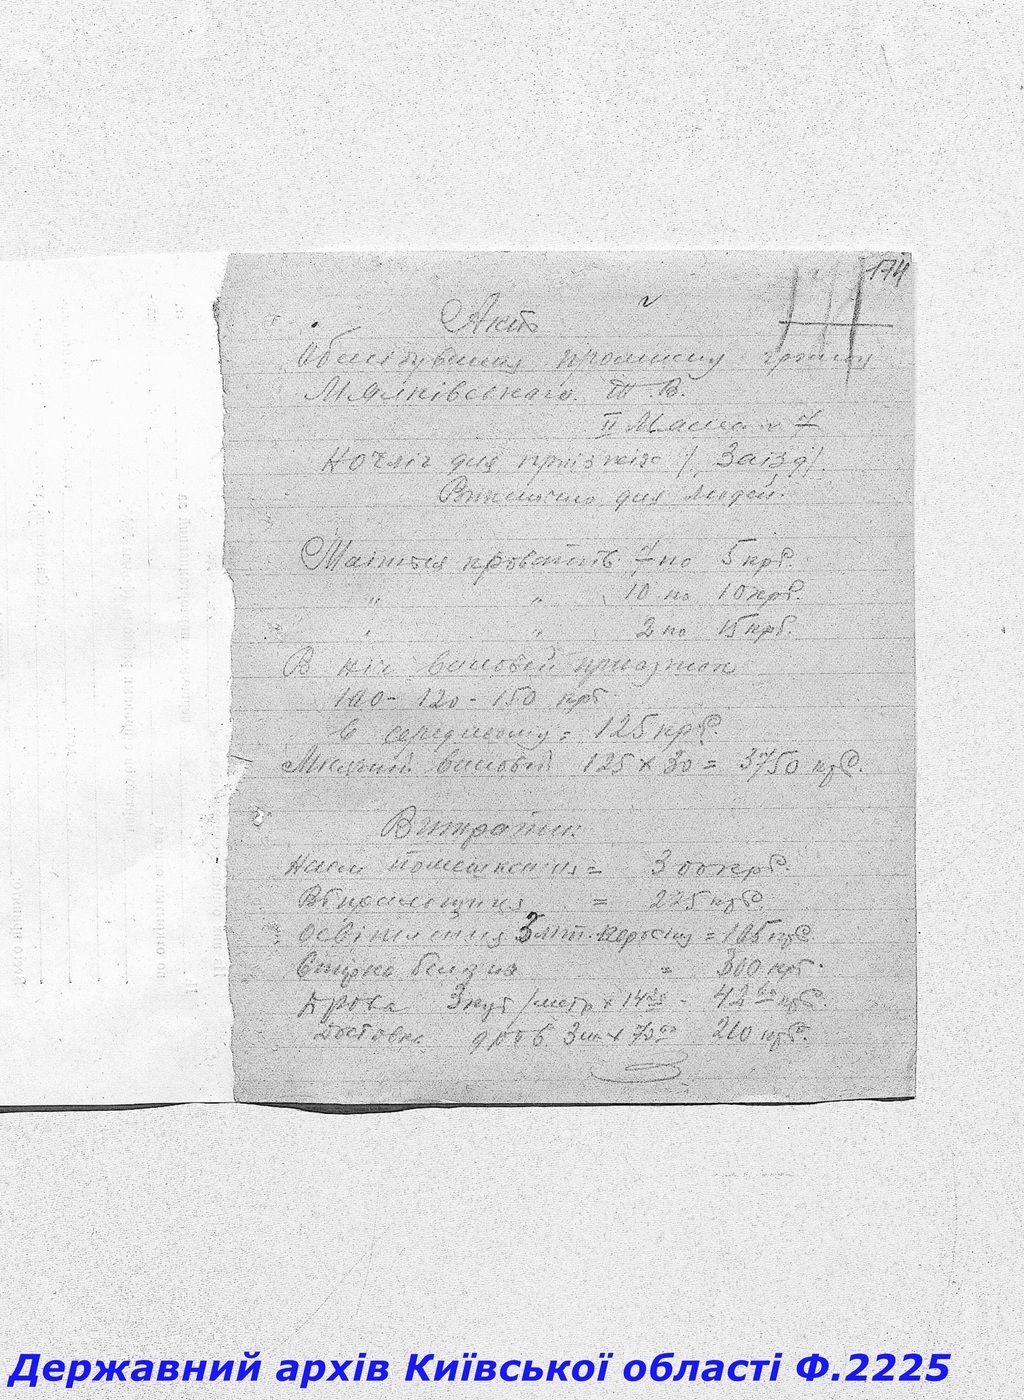 174
Актъ
Обслідування промислу громад
Мянківського. Т. В.
II Масна № 7
Ночліг для приїзжіх / Заїзд /.
Виключно для людей.
Маїться кроватів 7 по 5 крб.
" " 10 по 10 крб.
" " 2 по 15 крб.
В ніч валовей
100 - 120 - 150 крб
в середньому = 125 крб.
Місячний валовей 125 × 30 = 3750 крб.
Витрати:
Наем помешкання = 300 крб.
= 225 крб.
Освітлення 3 литр. керосину = 105 крб.
Стирка белизна = 300 крб.
Дрова 3 куб/метр × 14 = 42 крб.
Доставка дров 3 × 70 210 крб.
Державний архів Київської області Ф.2225